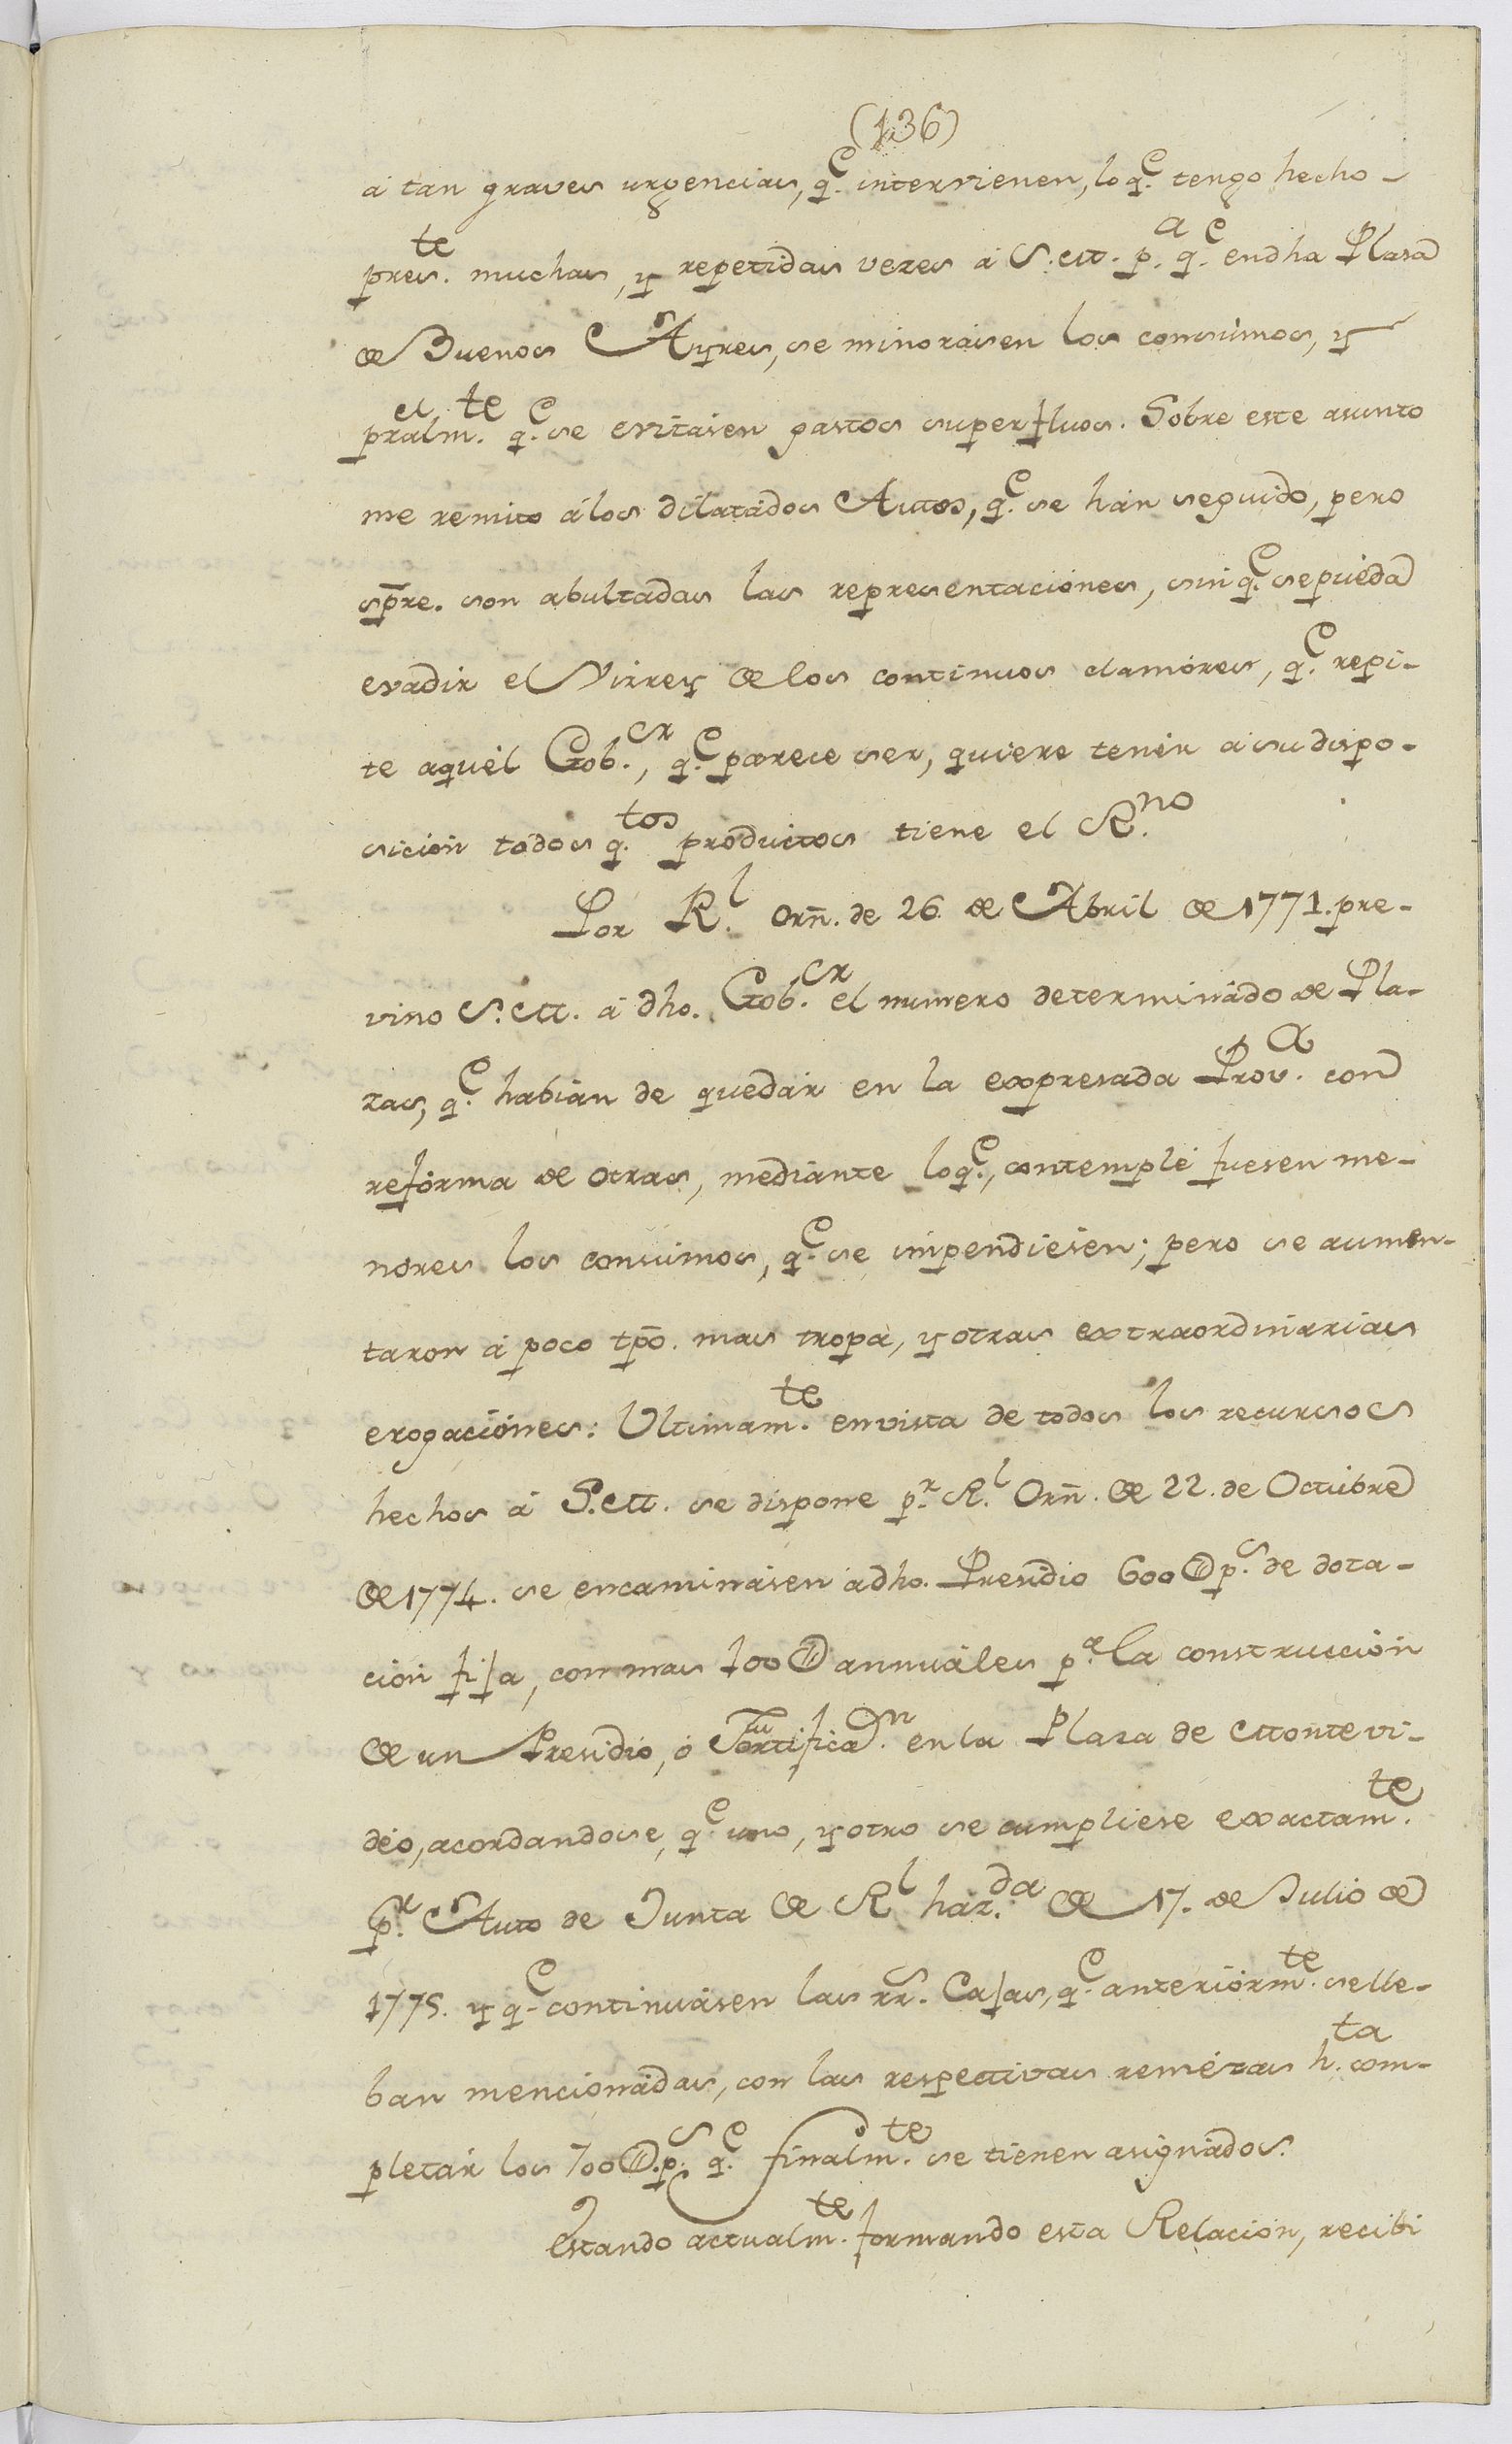 (136)
a tan graves urgencias, q.e intervienen, lo q.e tengo hecho
pres.te muchas, y repetidas vezes á S. M. p.a q.e en dha Plaza
de Buenos Ayres, se minorasen los consumos, y
pralm.te q.e se evitasen gastos superfluos. Sobre este asunto
me remito á los dilatados Autos, q.e se han seguido, pero
spre. son abultadas las representaciones, sin q.e se pueda
evadir el Virrey de los continuos clamores, q.e repi-
te aquel Gob.or, q.e parece ser, quiere tener a su dispo-
sicion todos q.tos productos tiene el R.no
Por R.l Orn. de 26 de Abril de 1771. pre-
vino S. M. á dho. Gob.or el numero determinado de Pla-
zas, q.e habian de quedar en la expresada Prov.a con
reforma de otras, mediante lo q.e, contemplé fuesen me-
nores los consumos, q.e se impendiesen; pero se aumen-
taron á poco tpo. mas tropa, y otras extraordinarias
erogaciones: Ultimam.te en vista de todos los recursos
hechos á S. M. se dispone p.r R.l Orn. de 22. de Octubre
de 1774. se encaminasen a dho. Presidio 600 D p.s de dota-
cion fija, con mas 100 D annuales p.a la construccion
de un Presidio, ó Fortificac.n en la Plaza de Montevi-
deo, acordandose, q.e uno, y otro se cumpliese exactam.te
p.r Auto de Junta de R.l haz.da de 17. de Julio de
1775. y q.e continuasen las rr.s Cajas, q.e anteriorm.te se lle-
ban mencionadas, con las respectivas remesas h.ta com-
pletar los 700 D. p.s q.e finalm.te se tienen asignados.
Estando actualm.te formando esta Relacion, recibi